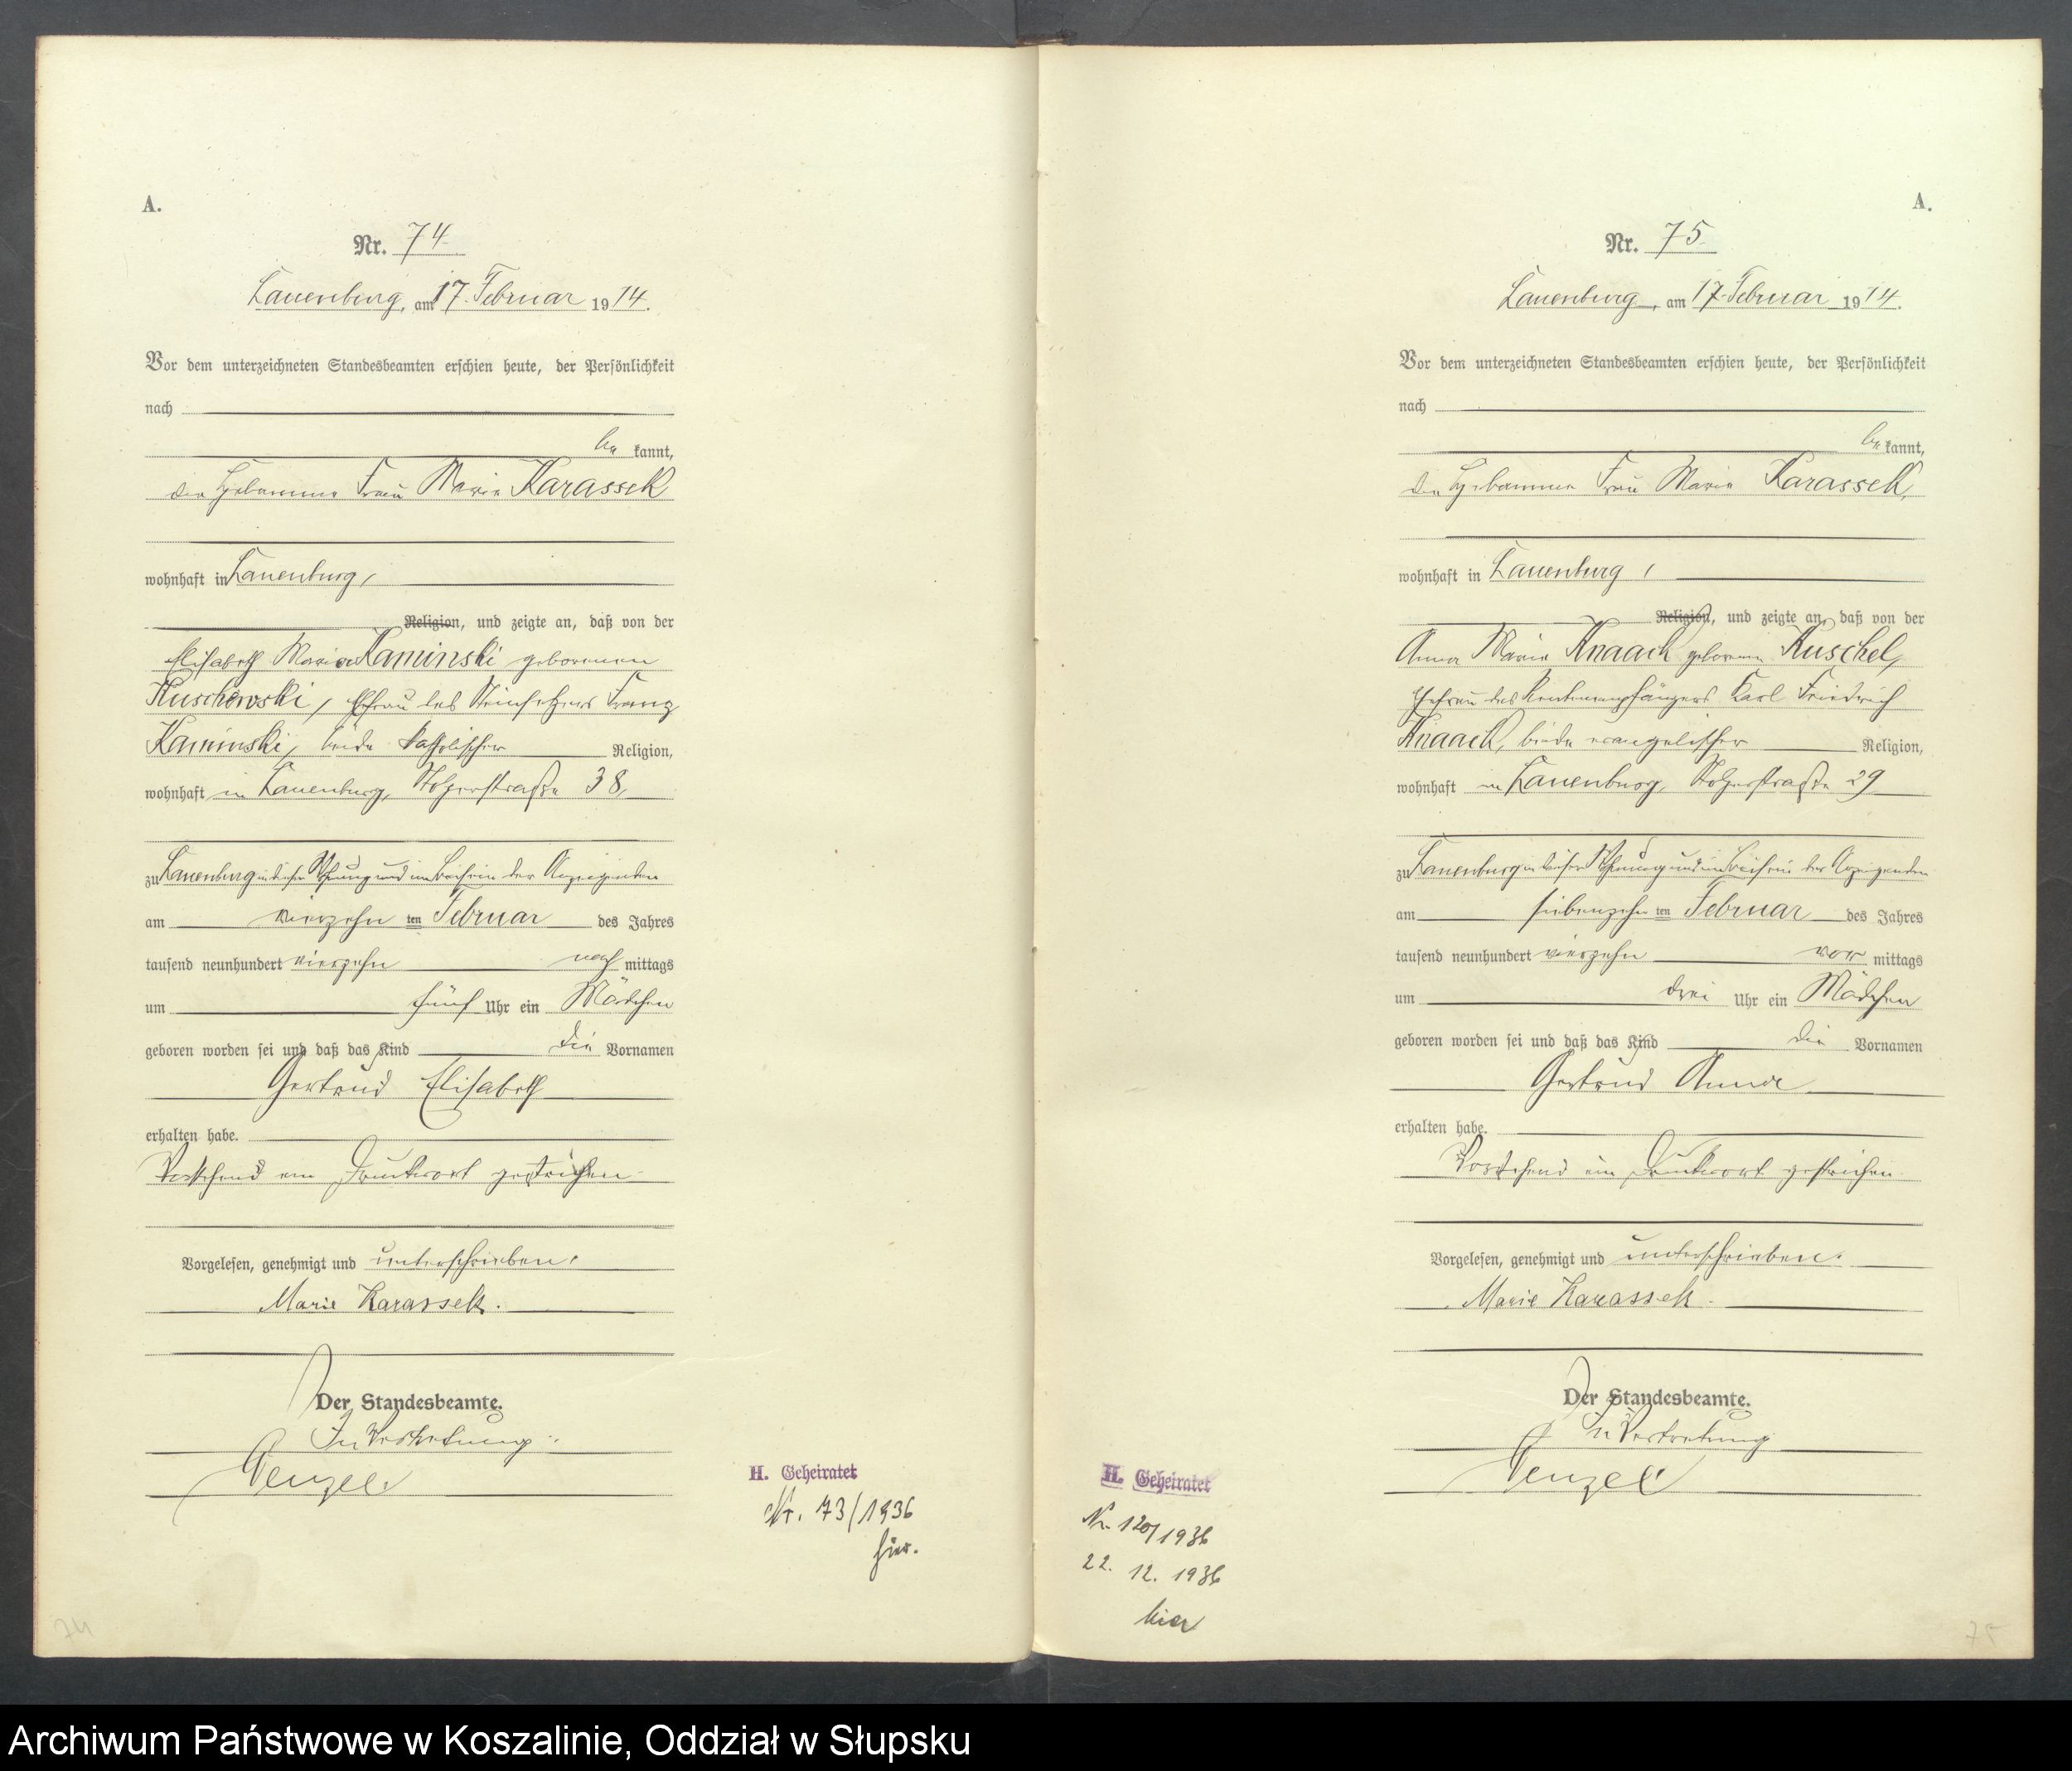 A.
Nr. 74
Lauenburg, am 17. Februar 1914.
Vor dem unterzeichneten Standesbeamten erschien heute, der Persönlichkeit
nach
be kannt,
die Hebamme Frau Marie Karassek
wohnhaft in Lauenburg,
Religion, und zeigte an, daß von der
Elisabeth Maria Kaminski geborenen
Kuschewski, Ehefrau des Steinsetzers Franz
Kaminski, beide katholischer Religion,
wohnhaft in Lauenburg, Stolperstraße 38,
zu Lauenburg in dieser Wohnung und im Beisein der Anzeigenden
am vierzehn ten Februar des Jahres
tausend neunhundert vierzehn nach mittags
um fünf Uhr ein Mädchen
geboren worden sei und daß das Kind die Vornamen
Gertrud Elisabeth
erhalten habe.
Vorstehend ein Druckwort gestrichen
Vorgelesen, genehmigt und unterschrieben.
Marie Karassek.
Der Standesbeamte.
In Vertretung.
Wenzel
H. Geheiratet
Nr. 73/1936
hier.
74
A.
Nr. 75
Lauenburg, am 17. Februar 1914.
Vor dem unterzeichneten Standesbeamten erschien heute, der Persönlichkeit
nach
be kannt,
die Hebamme Frau Marie Karassek,
wohnhaft in Lauenburg,
Religion, und zeigte an, daß von der
Anna Marie Knaack geborenen Kuschel,
Ehefrau des Rentenempfängers Karl Friedrich
Knaack, beide evangelischer Religion,
wohnhaft in Lauenburg, Stolperstraße 29
zu Lauenburg in dieser Wohnung und im Beisein der Anzeigenden
am siebenzehn ten Februar des Jahres
tausend neunhundert vierzehn vor mittags
um drei Uhr ein Mädchen
geboren worden sei und daß das Kind die Vornamen
Gertrud Anna
erhalten habe.
Vorstehend ein Druckwort gestrichen
Vorgelesen, genehmigt und unterschrieben.
Marie Karassek.
Der Standesbeamte.
In Vertretung
Wenzel
H. Geheiratet
Nr. 120/1936
22. 12. 1936
hier
75
Archiwum Państwowe w Koszalinie, Oddział w Słupsku